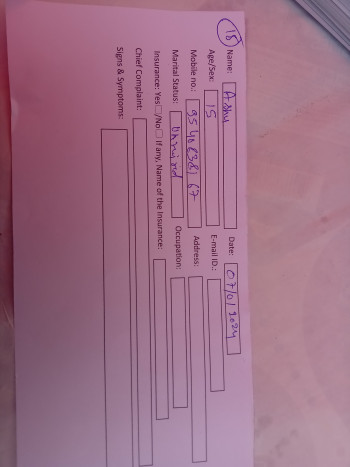 18
Name: Ashu Date: 07/01/2024
Age/Sex: 15 E-mail ID.:
Mobile no.: Address:
Marital Status: Occupation:
Insurance: Yes☐/No☐ If any, Name of the Insurance:
Chief Complaint:
Signs & Symptoms: